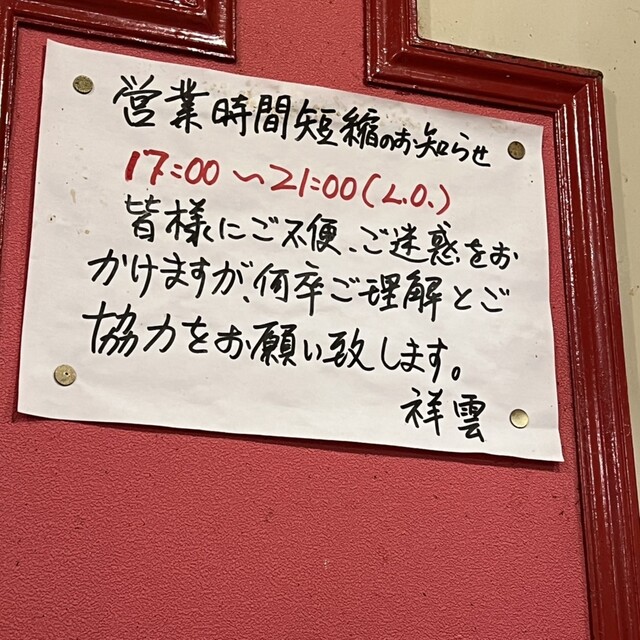 営業時間短縮のお知らせ
17:00〜21:00(L.O.)
皆様にご不便、ご迷惑をお
かけますが、何卒ご理解とご
協力をお願い致します。
祥雲